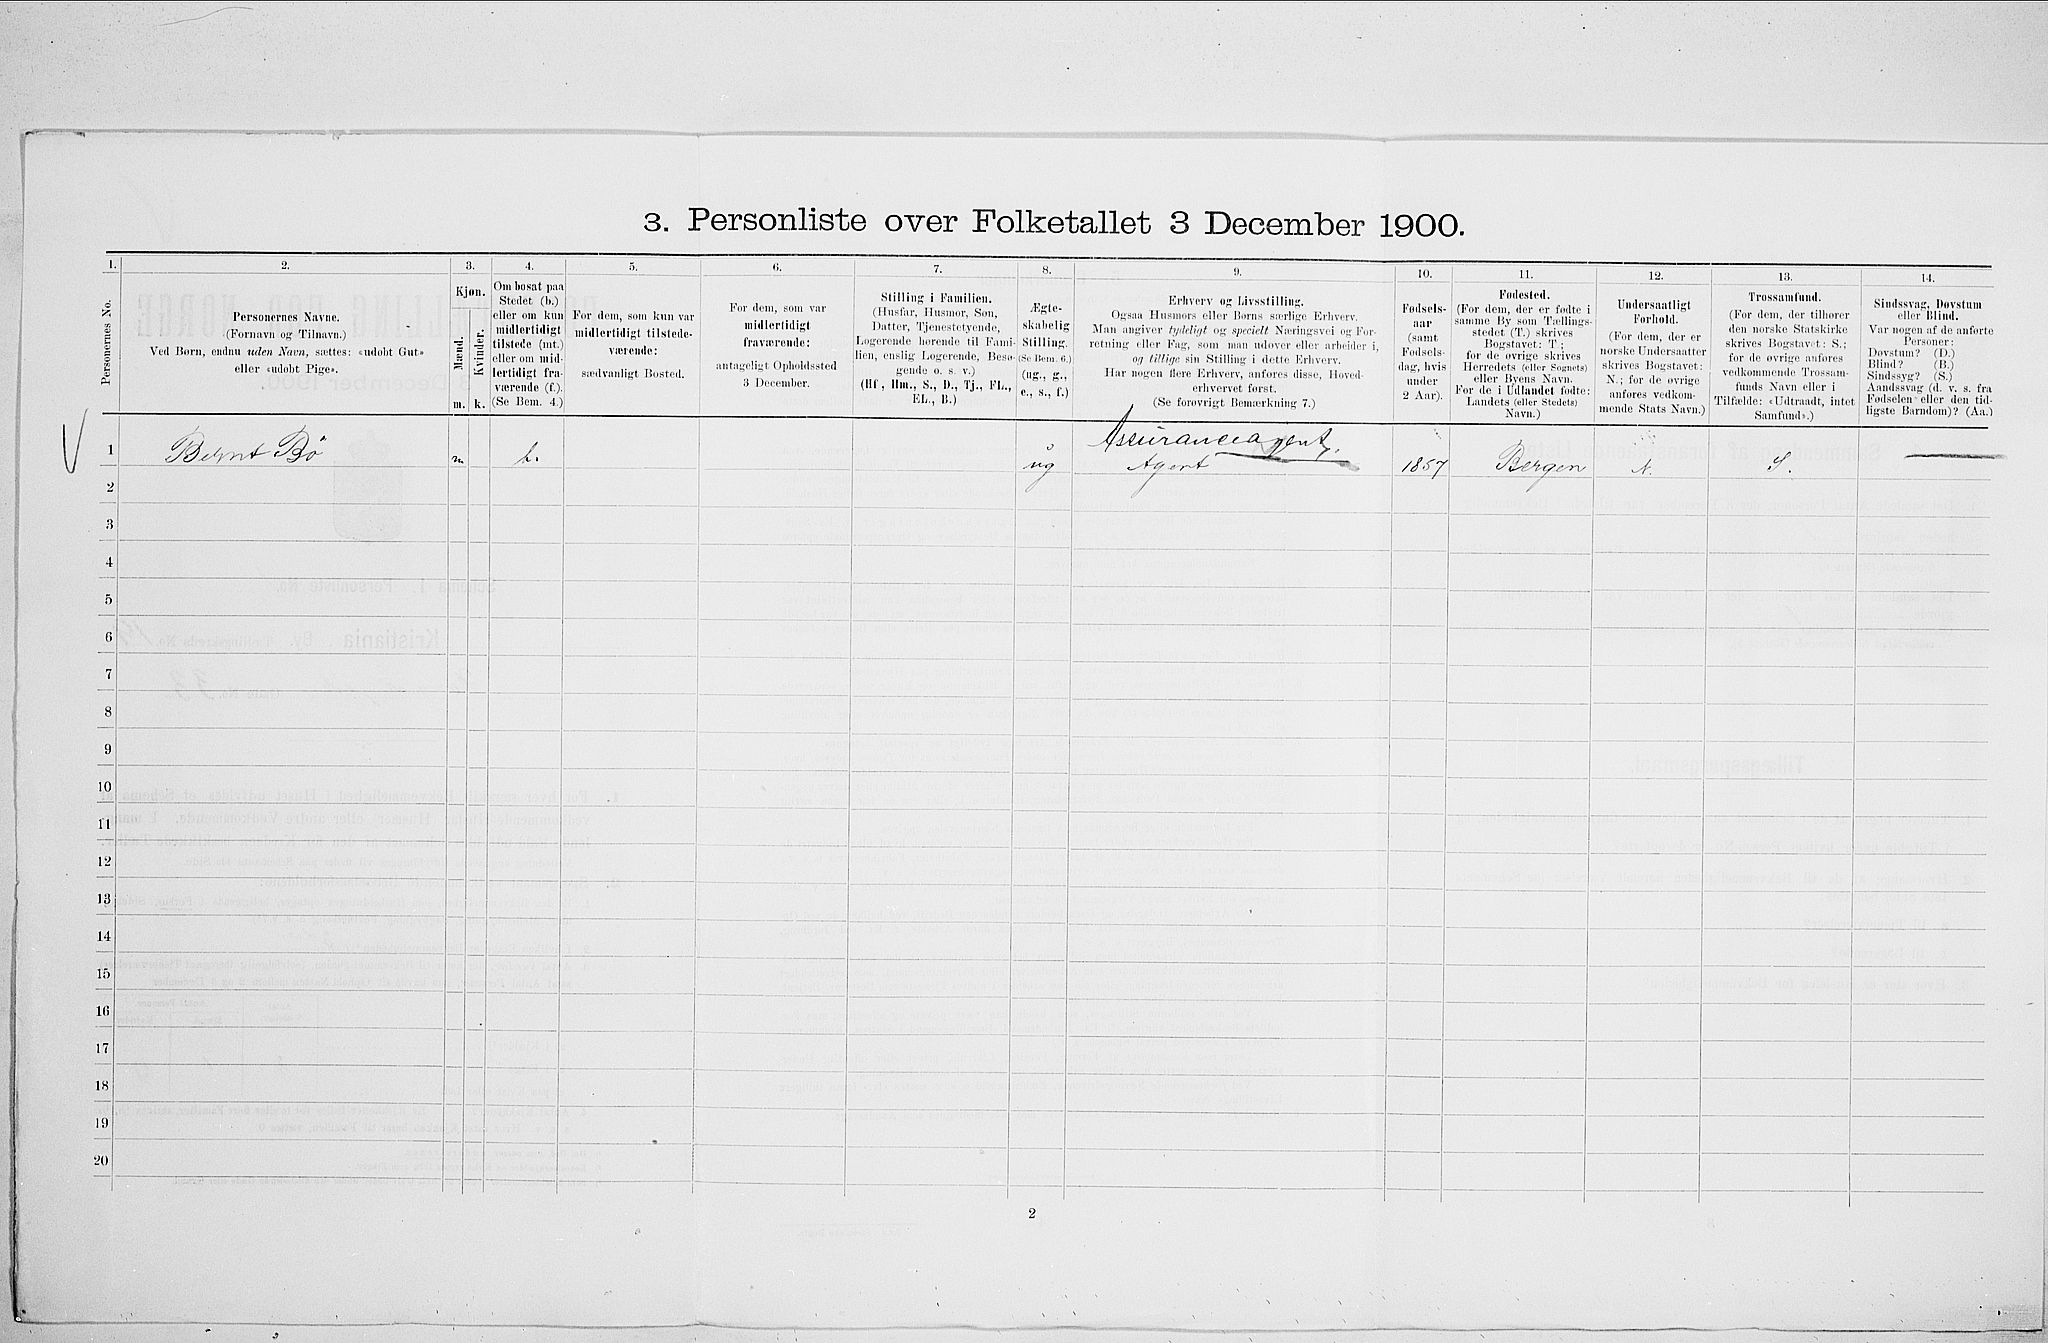 3. Personliste over Folketallet 3 December 1900.
1. 2. 3. 4. 5. 6. 7. 8. 9. 10. 11. 12. 13. 14.
Personernes No.
Personernes Navne.
(Fornavn og Tilnavn.)
Ved Børn, endnu uden Navn, sættes: «udøbt Gut»
eller «udøbt Pige».
Kjøn.
Mænd.
Kvinder.
m. k.
Om bosat paa
Stedet (b.)
eller om kun
midlertidigt
tilstede (mt.)
eller om mid-
lertidigt fra-
værende (f.).
(Se Bem. 4.)
For dem, som kun var
midlertidigt tilstede-
værende:
sædvanligt Bosted.
For dem, som var
midlertidigt
fraværende:
antageligt Opholdssted
3 December.
Stilling i Familien.
(Husfar, Husmor, Søn,
Datter, Tjenestetyende,
Logerende hørende til Fami-
lien, enslig Logerende, Besø-
gende o. s. v.)
(Hf., Hm., S., D., Tj., FL.,
EL., B.)
Ægte-
skabelig
Stilling.
(Se Bem. 6.)
(ug., g.,
e., s., f.)
Erhverv og Livsstilling.
Ogsaa Husmors eller Børns særlige Erhverv.
Man angiver tydeligt og specielt Næringsvei og For-
retning eller Fag, som man udøver eller arbeider i,
og tillige sin Stilling i dette Erhverv.
Har nogen flere Erhverv, anføres disse, Hoved-
erhvervet først.
(Se forøvrigt Bemærkning 7.)
Fødsels-
aar
(samt
Fødsels-
dag, hvis
under
2 Aar).
Fødested.
(For dem, der er fødte i
samme By som Tællings-
stedet (T.) skrives
Bogstavet: T;
for de øvrige skrives
Herredets (eller Sognets)
eller Byens Navn.
For de i Udlandet fødte:
Landets (eller Stedets)
Navn.)
Undersaatligt
Forhold.
(For dem, der er
norske Undersaatter
skrives Bogstavet:
N.; for de øvrige
anføres vedkom-
mende Stats Navn.)
Trossamfund.
(For dem, der tilhører
den norske Statskirke
skrives Bogstavet: S.;
for de øvrige anføres
vedkommende Trossam-
funds Navn eller i
Tilfælde: «Udtraadt, intet
Samfund».)
Sindssvag, Døvstum
eller Blind.
Var nogen af de anførte
Personer:
Døvstum? (D.)
Blind? (B.)
Sindssyg? (S.)
Aandssvag (d. v. s. fra
Fødselen eller den tid-
ligste Barndom)? (Aa.)
Assuranceagent.
1 Bernt Bö m b. ug Agent 1857 Bergen N. S.
2
3
4
5
6
7
8
9
10
11
12
13
14
15
16
17
18
19
20
2